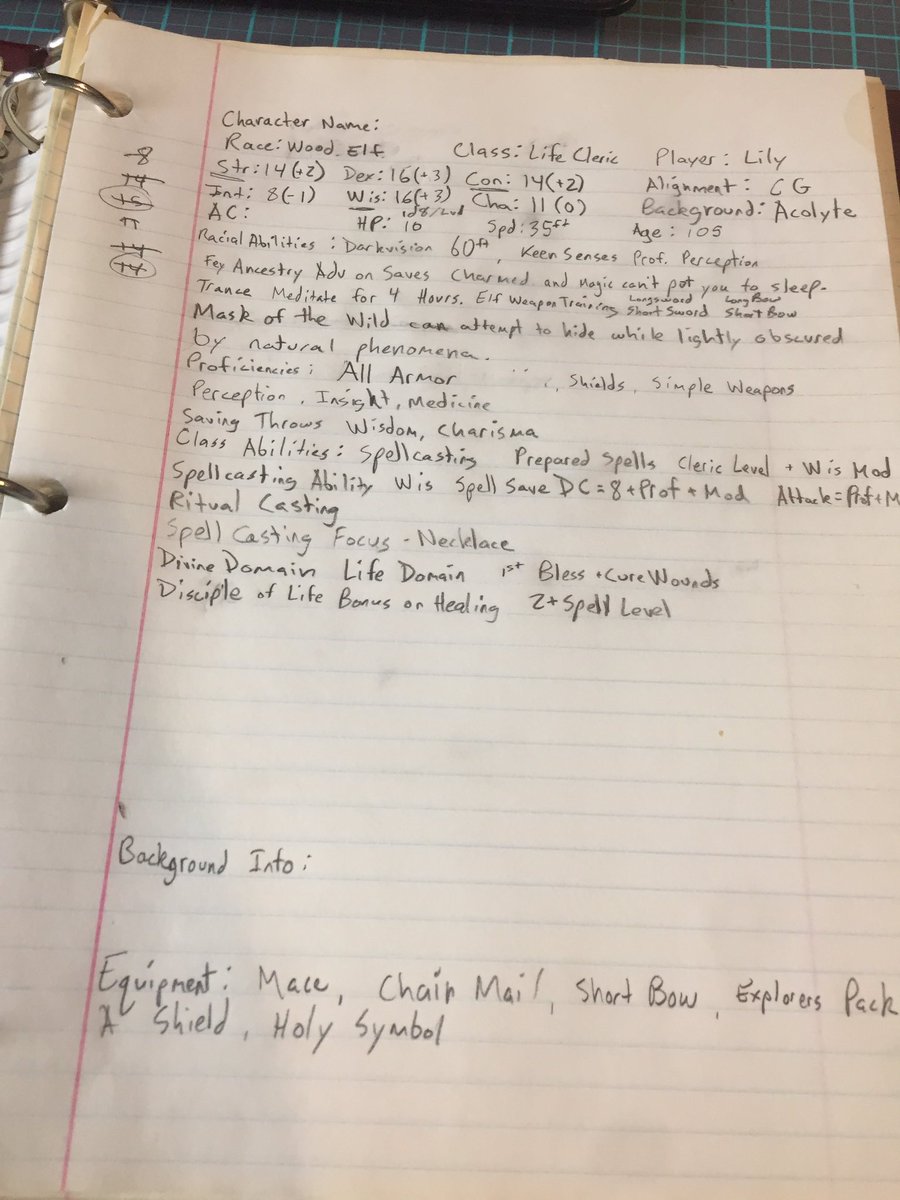 Character Name:
Race: Wood Elf Class: Life Cleric Player: Lily
Str: 14(+2) Dex: 16(+3) Con: 14(+2) Alignment: CG
Int: 8(-1) Wis: 16(+3) Cha: 11(0) Background: Acolyte
AC: HP: 10 1d8/Lvl Spd: 35ft Age: 105
Racial Abilities: Darkvision 60ft, Keen Senses Prof. Perception
Fey Ancestry Adv on Saves Charmed and Magic can't put you to sleep.
Trance Meditate for 4 Hours. Elf Weapon Training Longsword Short Sword Long Bow Short Bow
Mask of the Wild can attempt to hide while lightly obscured
by natural phenomena.
Proficiencies: All Armor , Shields, Simple Weapons
Perception, Insight, Medicine
Saving Throws Wisdom, Charisma
Class Abilities: Spellcasting Prepared Spells Cleric Level + Wis Mod
Spellcasting Ability Wis Spell Save DC = 8 + Prof + Mod Attack = Prof + M
Ritual Casting
Spell Casting Focus - Necklace
Divine Domain Life Domain 1st Bless + Cure Wounds
Disciple of Life Bonus on Healing 2 + Spell Level
Background Info:
Equipment: Mace, Chain Mail, Short Bow, Explorers Pack
A Shield, Holy Symbol